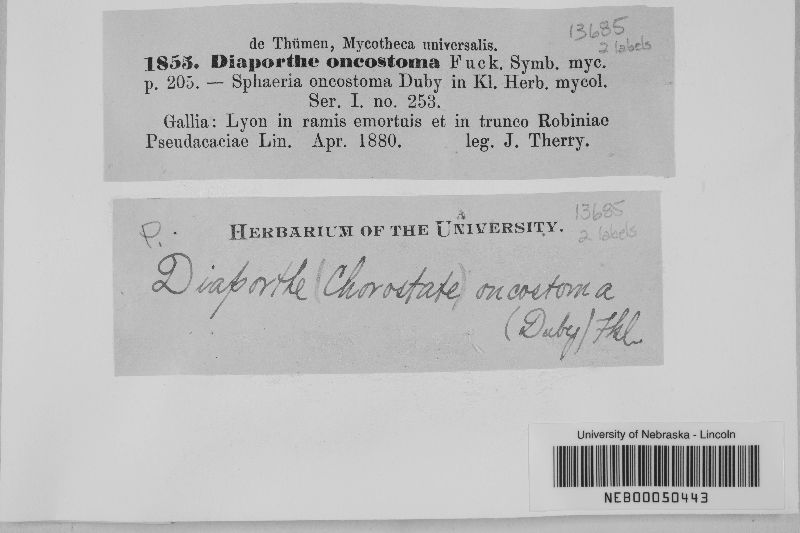 13685
2 labels
de Thümen, Mycotheca universalis.
1855. Diaporthe oncostoma Fuck. Symb. myc.
p. 205. — Sphaeria oncostoma Duby in Kl. Herb. mycol.
Ser. I. no. 253.
Gallia: Lyon in ramis emortuis et in trunco Robiniae
Pseudacaciae Lin. Apr. 1880. leg. J. Therry.
13685
2 labels
P.
HERBARIUM OF THE UNIVERSITY.
Diaporthe (Chorostate) oncostoma
(Duby) Fkl.
University of Nebraska - Lincoln
NEB00050443